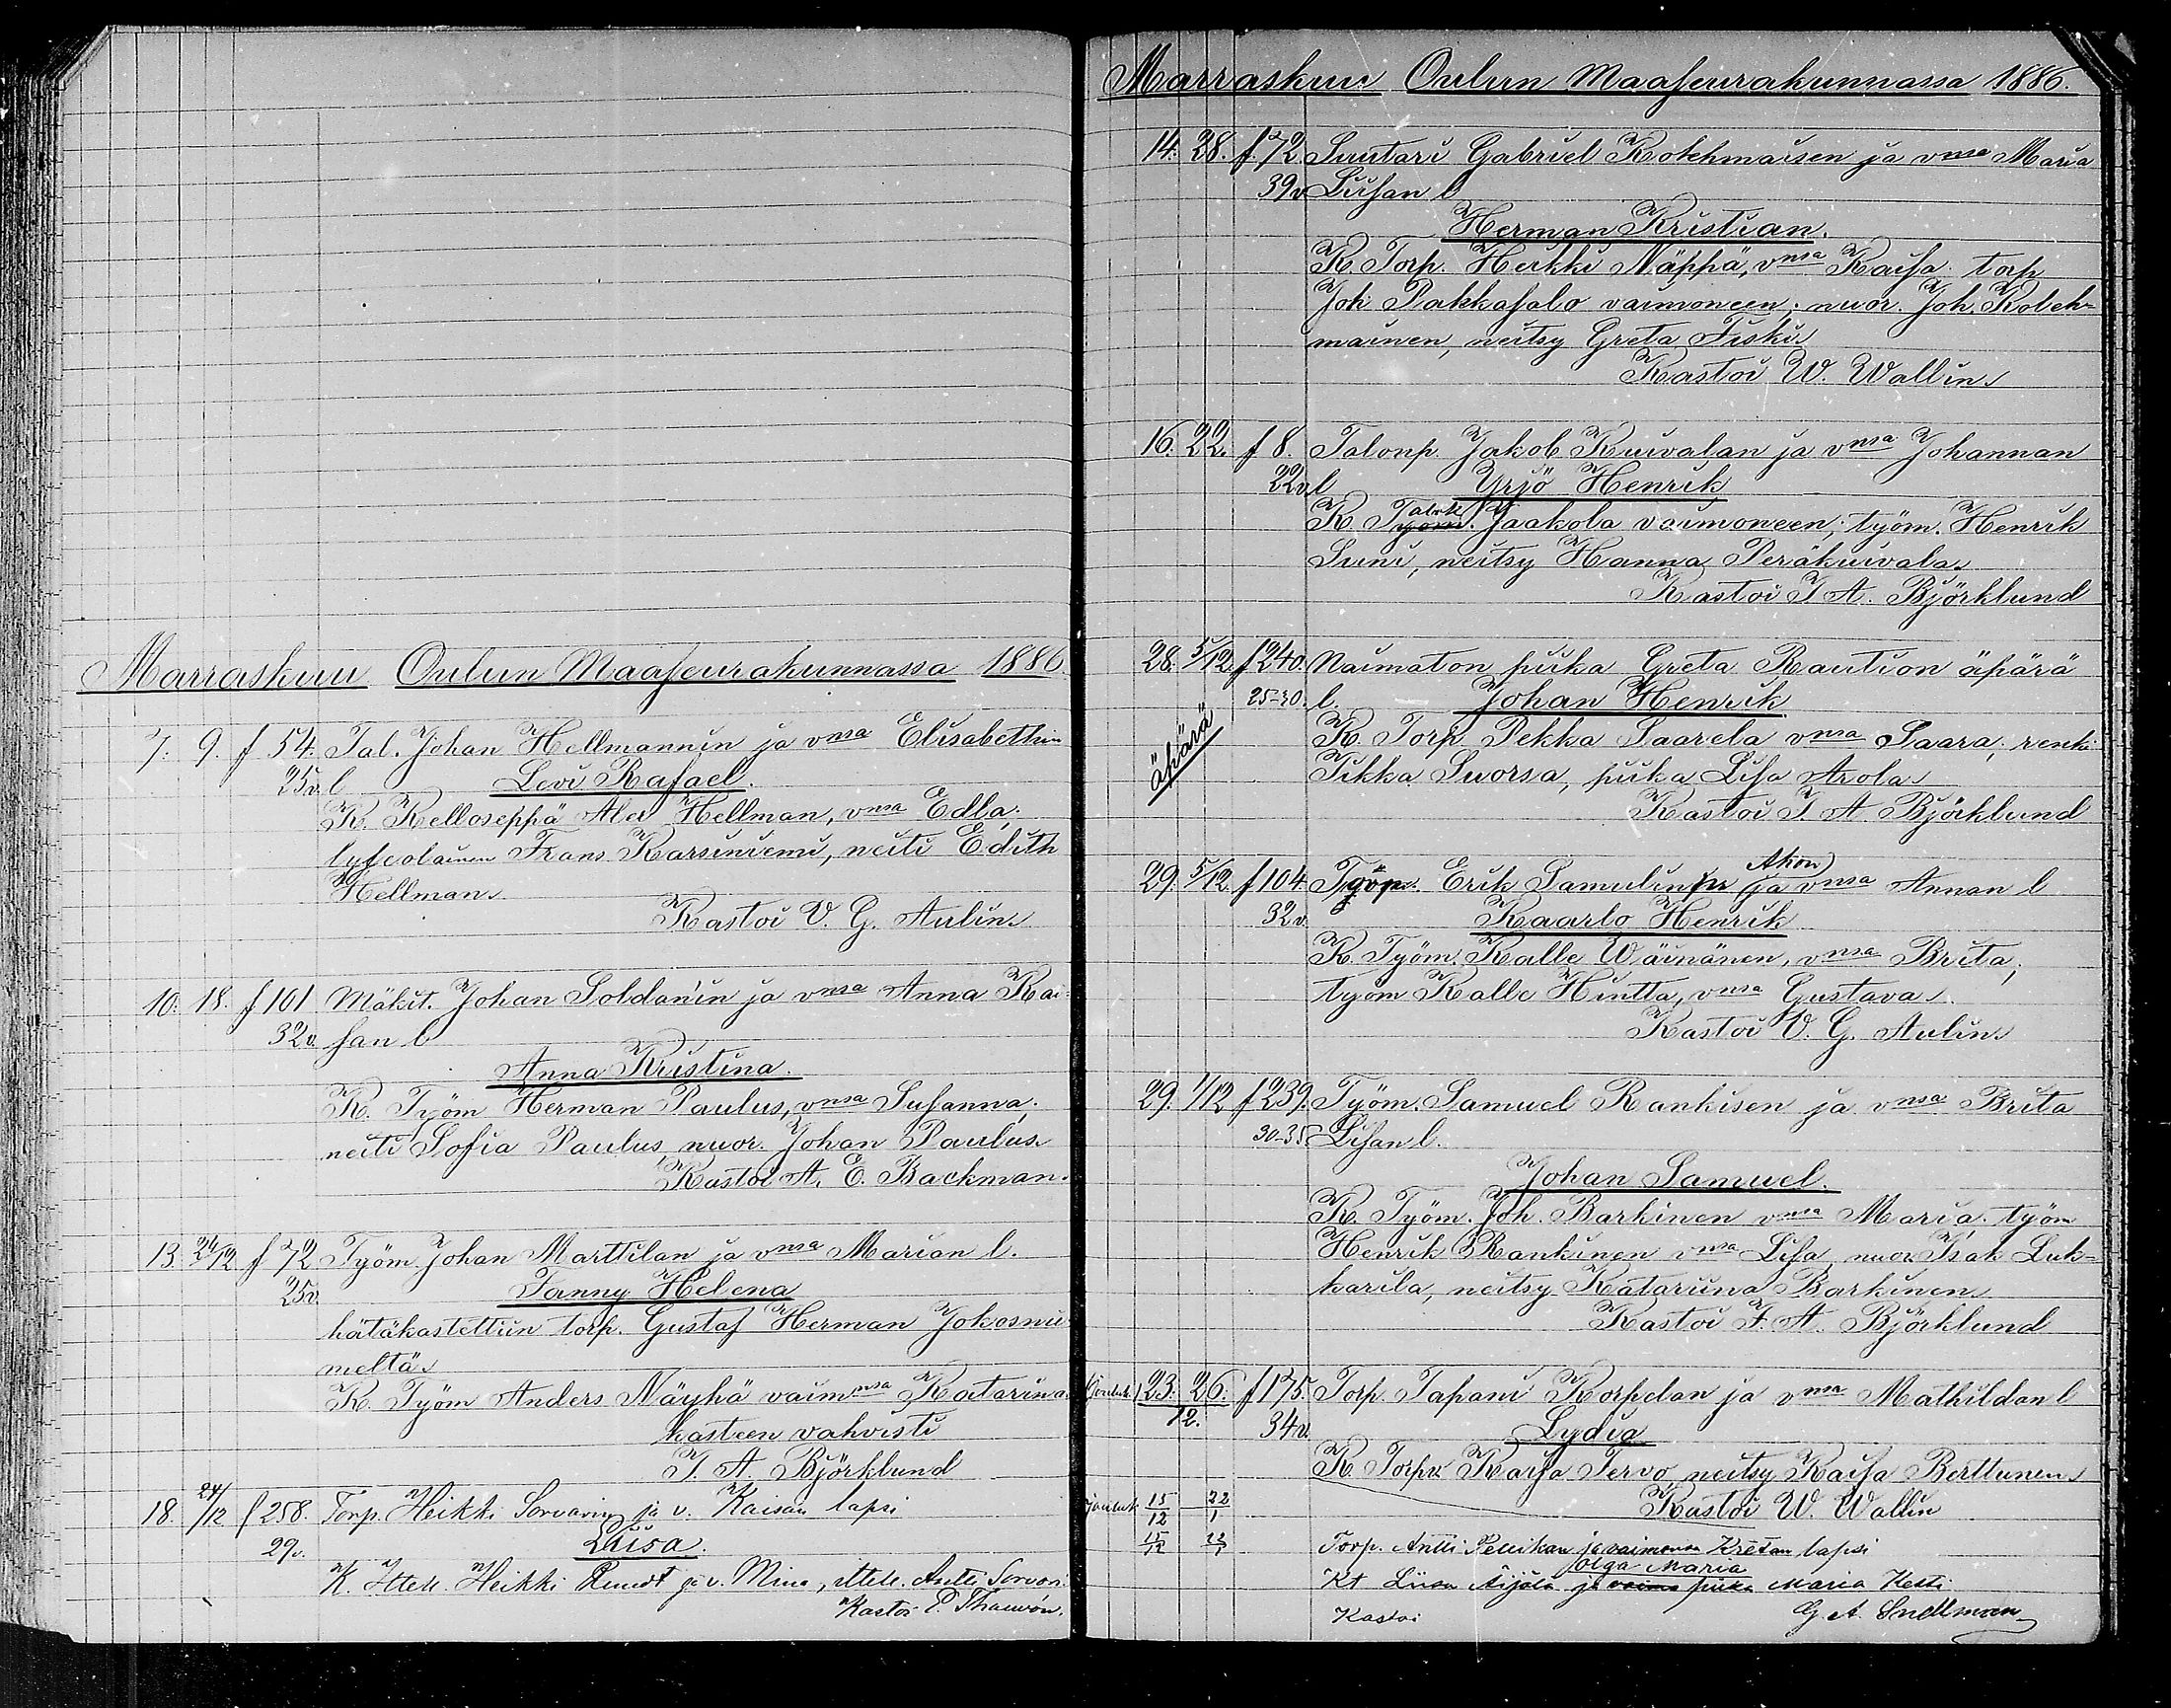 Marraskuu Oulun Maaseurakunnassa 1886.
7. 9. f 54. Tal. Johan Hellmannin ja vnsa Elisabethin
25v. l Levi Rafael.
K. Kelloseppä Alex Hellman, vnsa Edla;
lyseolainen Frans Karsiniemi, neiti Edith
Hellman.
Kastoi V. G. Aulin.
10. 18. f 101 Mäkit. Johan Soldan'in ja vnsa Anna Kai-
32v. san l
Anna Kristina.
K. Työm Herman Paulus, vnsa Susanna;
neiti Sofia Paulus, nuor. Johan Paulus.
Kastoi A. E. Backman.
13. 24/12 f 72 Työm Johan Marttilan ja vnsa Marian l.
25v. Fanny Helena
hätäkastettiin torp. Gustaf Herman Jokosnii
meltä.
K. Työm Anders Näyhä vaimnsa Katarina.
kasteen vahvisti
J. A. Björklund
18. 24/12 f 258. Torp. Heikki Sorvarin ja v. Kaisan lapsi
29v. Liisa.
K. Ittell. Heikki Rundt ja v. Mina, ittell. Antti Sorvari
Kastoi P. Thauvón.
Marraskuu Oulun Maaseurakunnassa 1886.
14. 28. f. 72 Suutari Gabriel Kolehmaisen ja vnsa Maria
39v Liisan l
Herman Kristian.
K. Torp. Heikki Näppä, vnsa Kaisa. torp
Joh Pakkasalo vaimoneen; nuor. Joh. Koleh-
mainen, neitsy Greta Fiski.
Kastoi W. Wallin.
16. 22. f 8. Talonp. Jakob Kuivalan ja vnsa Johannan
22v. l Yrjö Henrik
K. Työm. Jaakola vaimoneen; työm. Henrik
Suni, neitsy Hanna Peräkuivala.
Kastoi J. A. Björklund
28. 5/12 f 240. Naimaton piika Greta Raution äpärä
25-30. l. Johan Henrik
äpärä
K. Torp. Pekka Saarela vnsa Saara; renki
Tikka Suorsa, piika Lisa Arola.
Kastoi J. A. Björklund
Ahon
29. 5/12. f 104. Työm. Erik Samulin ja vnsa Annan l
32v. Kaarlo Henrik
K. Työm. Kalle Wäinänen, vnsa Brita;
työm Kalle Hintta, vnsa Gustava.
Kastoi V. G. Aulin.
29. 1/12 f 239. Työm. Samuel Rankisen ja vnsa Brita
30-35. Lisan l.
Johan Samuel.
K. Työm. Joh. Barkinen vnsa Maria. työm
Henrik Rankinen vnsa Lisa, nuor. Isak Luk=
karila, neitsy Katariina Barkinen
Kastoi J. A. Björklund
Jouluk. 23. 26. f 175. Torp. Tapani Korpelan ja vnsa Mathildan l
12. 34v. Lydia
K. Torpv. Kaisa Tervo, neitsy Kaisa Berttunen
Jouluk 15/12 22/1 Kastoi W. Wallin
15/12 22/1 Torp. Antti ja vaimonsa Kretan lapsi
Olga Maria
Kt Liisa Äijälä ja vaimo piika Maria Kesti
Kastoi G. A. Snellman